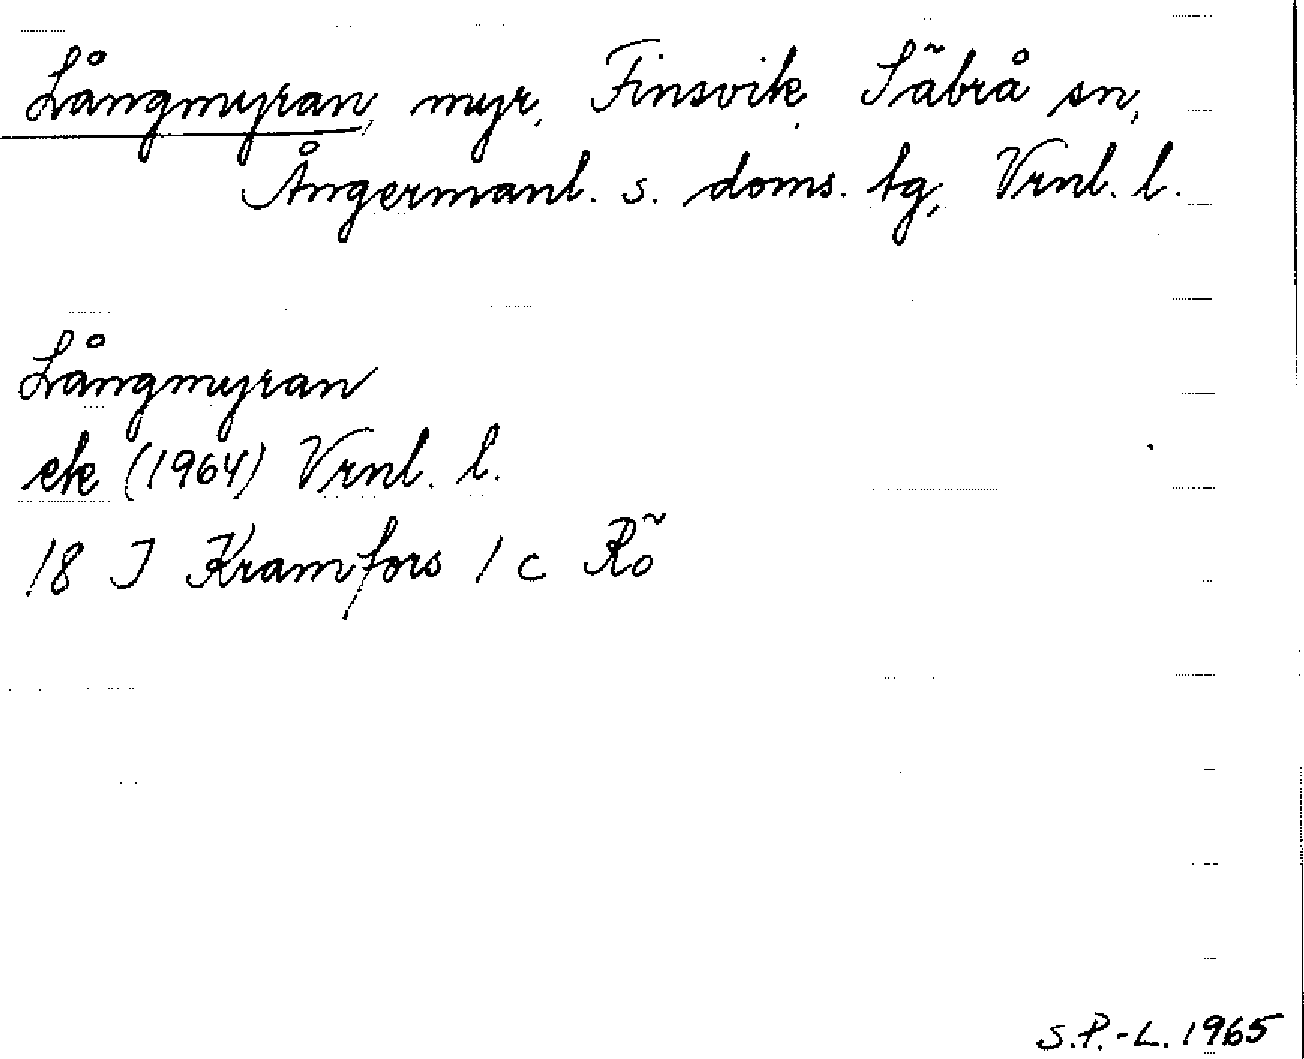 Långmyran, myr, Finsvik, Säbrå sn,
Ångermanl. s. doms. tg, Vrnl. l.
Långmyran
ek (1964) Vrnl. l.
18 J Kramfors 1 c Rö
S.P.-L. 1965